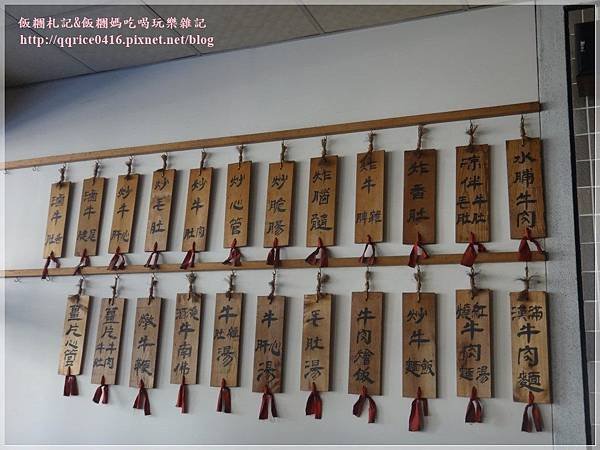 飯糰札記&飯糰媽吃喝玩樂雜記
http://qqrice0416.pixnet.net/blog
水晡牛肉
涼伴牛肚毛肚
炸香肚
炸牛脾雜
炸腦髓
炒脆腸
炒心管
炒牛肚肉
炒毛肚
炒牛肝心
滷牛腱尾
滷牛肚舌
滿漢牛肉麵
紅燒牛肉湯麵
炒牛飯麵
牛肉燴飯
毛肚湯
牛心肝湯
牛雜肚湯
牛南佛
燉牛鞭
薑片牛肉牛肚
薑片心管